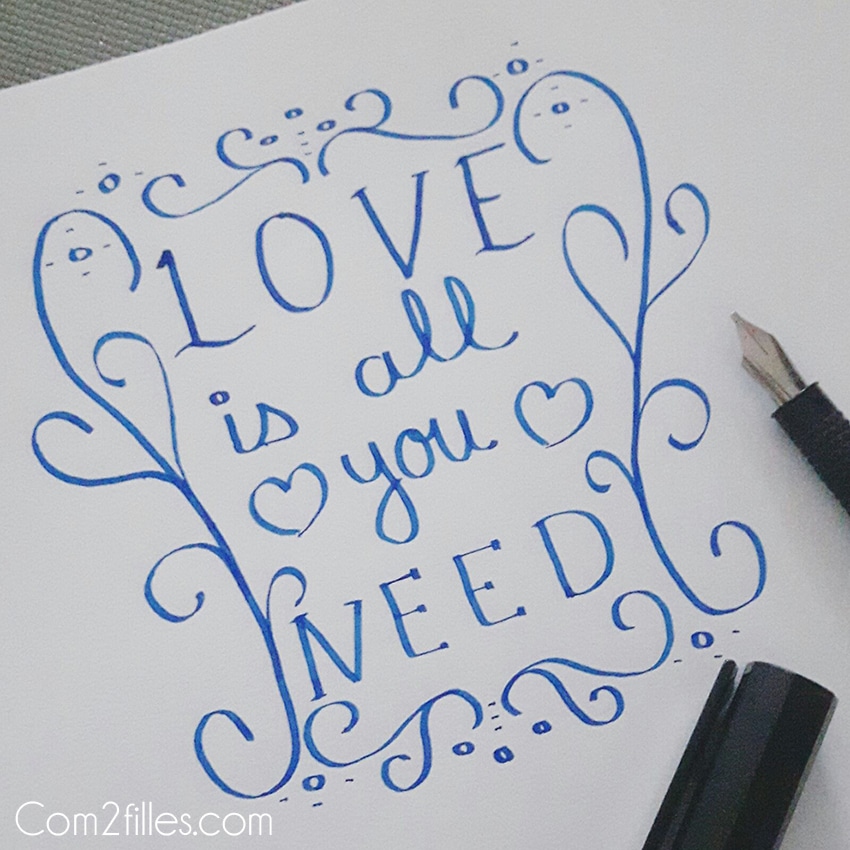 LOVE
is all
you
NEED
Com2filles.com